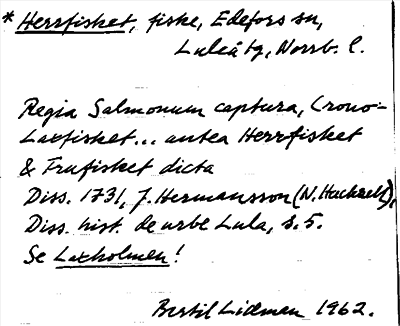 * Herrfisket, fiske, Edefors sn,
Luleå tg, Norrb. l.
Regia Salmonum captura, Crono-
Laxfisket... antea Herrfisket
& Frufisket dicta
Diss. 1731, J. Hermansson (N. Hackzell),
Diss. hist. de urbe Lula, s. 5.
Se Laxholmen!
Bertil Lidman 1962.